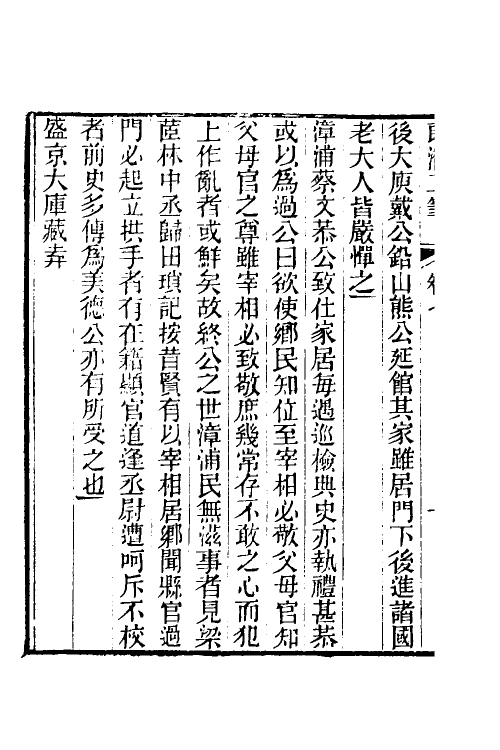 郎潛二筆　卷七
後大庾戴公鉛山熊公延館其家雖居門下後進諸國
老大人皆嚴憚之
漳浦蔡文恭公致仕家居每遇巡檢典史亦執禮甚恭
或以爲過公曰欲使鄉民知位至宰相必敬父母官知
父母官之尊雖宰相必致敬庶幾常存不敢之心而犯
上作亂者或鮮矣故終公之世漳浦民無滋事者見梁
茞林中丞歸田瑣記按昔賢有以宰相居鄉聞縣官過
門必起立拱手者有在籍顯官道逢丞尉遭呵斥不校
者前史多傳爲美德公亦有所受之也
盛京大庫藏弆